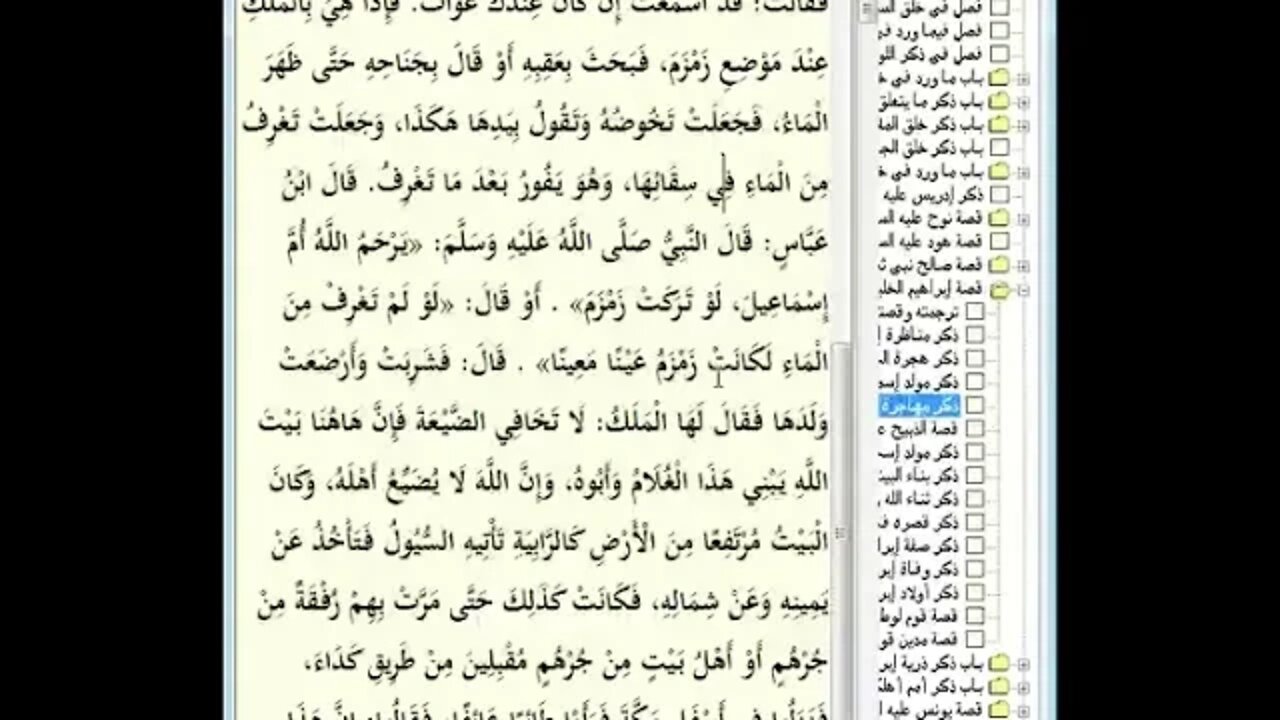 فَقَالَتْ: قَدْ أَسْمَعْتَ إِنْ كَانَ عِنْدَكَ غَوَاثٌ. فَإِذَا هِيَ بِالْمَلَكِ
عِنْدَ مَوْضِعِ زَمْزَمَ، فَبَحَثَ بِعَقِبِهِ أَوْ قَالَ بِجَنَاحِهِ حَتَّى ظَهَرَ
الْمَاءُ، فَجَعَلَتْ تَخُوضُهُ وَتَقُولُ بِيَدِهَا هَكَذَا، وَجَعَلَتْ تَغْرِفُ
مِنَ الْمَاءِ فِي سِقَائِهَا، وَهُوَ يَفُورُ بَعْدَ مَا تَغْرِفُ. قَالَ ابْنُ
عَبَّاسٍ: قَالَ النَّبِيُّ صَلَّى اللَّهُ عَلَيْهِ وَسَلَّمَ: «يَرْحَمُ اللَّهُ أُمَّ
إِسْمَاعِيلَ، لَوْ تَرَكَتْ زَمْزَمَ» . أَوْ قَالَ: «لَوْ لَمْ تَغْرِفْ مِنَ
الْمَاءِ لَكَانَتْ زَمْزَمُ عَيْنًا مَعِينًا» . قَالَ: فَشَرِبَتْ وَأَرْضَعَتْ
وَلَدَهَا فَقَالَ لَهَا الْمَلَكُ: لَا تَخَافِي الضَّيْعَةَ فَإِنَّ هَاهُنَا بَيْتَ
اللَّهِ يَبْنِي هَذَا الْغُلَامُ وَأَبُوهُ، وَإِنَّ اللَّهَ لَا يُضَيِّعُ أَهْلَهُ، وَكَانَ
الْبَيْتُ مُرْتَفِعًا مِنَ الْأَرْضِ كَالرَّابِيَةِ تَأْتِيهِ السُّيُولُ فَتَأْخُذُ عَنْ
يَمِينِهِ وَعَنْ شِمَالِهِ، فَكَانَتْ كَذَلِكَ حَتَّى مَرَّتْ بِهِمْ رُفْقَةٌ مِنْ
جُرْهُمٍ أَوْ أَهْلُ بَيْتٍ مِنْ جُرْهُمٍ مُقْبِلِينَ مِنْ طَرِيقِ كَدَاءَ،
فَنَزَلُوا فِي أَسْفَلِ مَكَّةَ فَرَأَوْا طَائِرًا عَائِفًا، فَقَالُوا: إِنَّ هَذَا
فصل في خلق
فصل فيما ورد في
فصل في ذكر اللو
باب ما ورد في خ
باب ذكر ما يتعلق
باب ذكر خلق الملا
باب ذكر خلق الجا
باب ما ورد في خ
ذكر إدريس عليه
قصة نوح عليه الس
قصة هود عليه الس
قصة صالح نبي ث
قصة إبراهيم الخلي
ترجمته وقصت
ذكر مناظرة إ
ذكر هجرة ال
ذكر مولد إسم
ذكر مهاجرة
قصة الذبيح ع
ذكر مولد إس
ذكر بناء البي
ذكر ثناء الله
ذكر قصره ف
ذكر صفة إبرا
ذكر وفاة إبر
ذكر أولاد إبر
قصة قوم لوط
قصة مدين قو
باب ذكر ذرية إبر
باب ذكر أمم أهلك
قصة يونس عليه ا